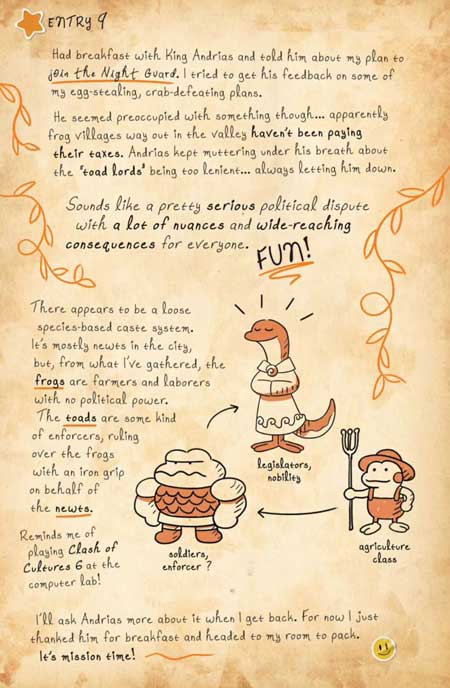 ENTRY 9
Had breakfast with King Andrias and told him about my plan to
join the Night Guard. I tried to get his feedback on some of
my egg-stealing, crab-defeating plans.
He seemed preoccupied with something though... apparently
frog villages way out in the valley haven't been paying
their taxes. Andrias kept muttering under his breath about
the "toad lords" being too lenient... always letting him down.
Sounds like a pretty serious political dispute
with a lot of nuances and wide-reaching
consequences for everyone.
FUN!
There appears to be a loose
species-based caste system.
It's mostly newts in the city,
but, from what I've gathered, the
frogs are farmers and laborers
with no political power.
The toads are some kind
of enforcers, ruling
over the frogs
with an iron grip
on behalf of
the newts.
legislators,
nobility
soldiers,
enforcer ?
agriculture
class
Reminds me of
playing Clash of
Cultures 6 at the
computer lab!
I'll ask Andrias more about it when I get back. For now I just
thanked him for breakfast and headed to my room to pack.
It's mission time!